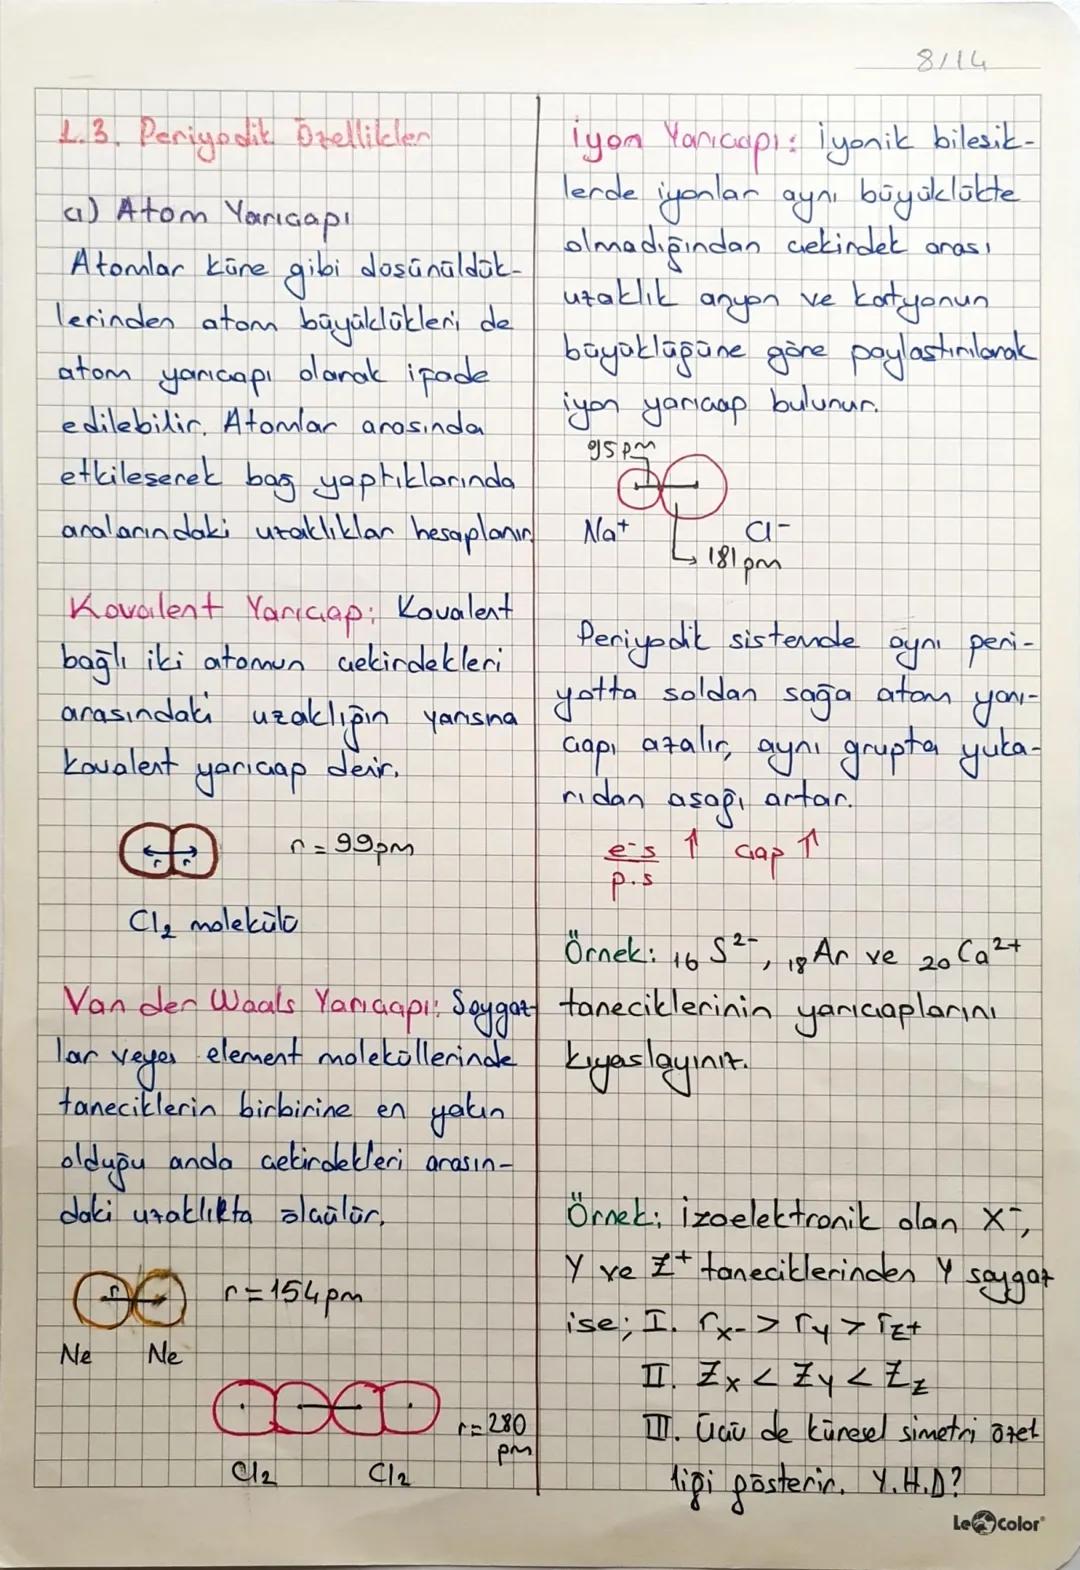 8/14
1.3. Periyodik Özellikler
a) Atom Yarıçapı
Atomlar küre gibi düşünüldük-
lerinden atom büyüklükleri de
atom yarıçapı olarak ifade
edilebilir. Atomlar arasında
etkileşerek bağ yaptıklarında
aralarındaki uzaklıklar hesaplanır
Kovalent Yarıçap: Kovalent
bağlı iki atomun çekirdekleri
arasındaki uzaklığın yarısına
kovalent yarıçap denir.
r r
r = 99pm
Cl₂ molekülü
Van der Waals Yarıçapı: Soygaz
lar veya element moleküllerinde
taneciklerin birbirine en yakın
olduğu anda çekirdekleri arasın-
daki uzaklıkta ölçülür.
r
r = 154pm
Ne Ne
r = 280
pm
Cl₂ Cl₂
İyon Yarıçapı: İyonik bileşik-
lerde iyonlar aynı büyüklükte
olmadığından çekirdek arası
uzaklık anyon ve katyonun
büyüklüğüne göre paylaştırılarak
iyon yarıçap bulunur.
95 pm
Na⁺ Cl⁻
181 pm
Periyodik sistemde aynı peri-
yotta soldan sağa atom yarı-
çapı azalır, aynı grupta yuka-
rıdan aşağı artar.
e⁻s ↑ çap ↑
p.s
Örnek: ₁₆S²⁻, ₁₈Ar ve ₂₀Ca²⁺
taneciklerinin yarıçaplarını
kıyaslayınız.
Örnek: İzoelektronik olan X⁻,
Y ve Z⁺ taneciklerinden Y soygaz
ise; I. rx⁻ > ry > rz⁺
II. Zx < Zy < Zz
III. Üçü de küresel simetri özel
liği gösterir. Y.H.D?
Le Color